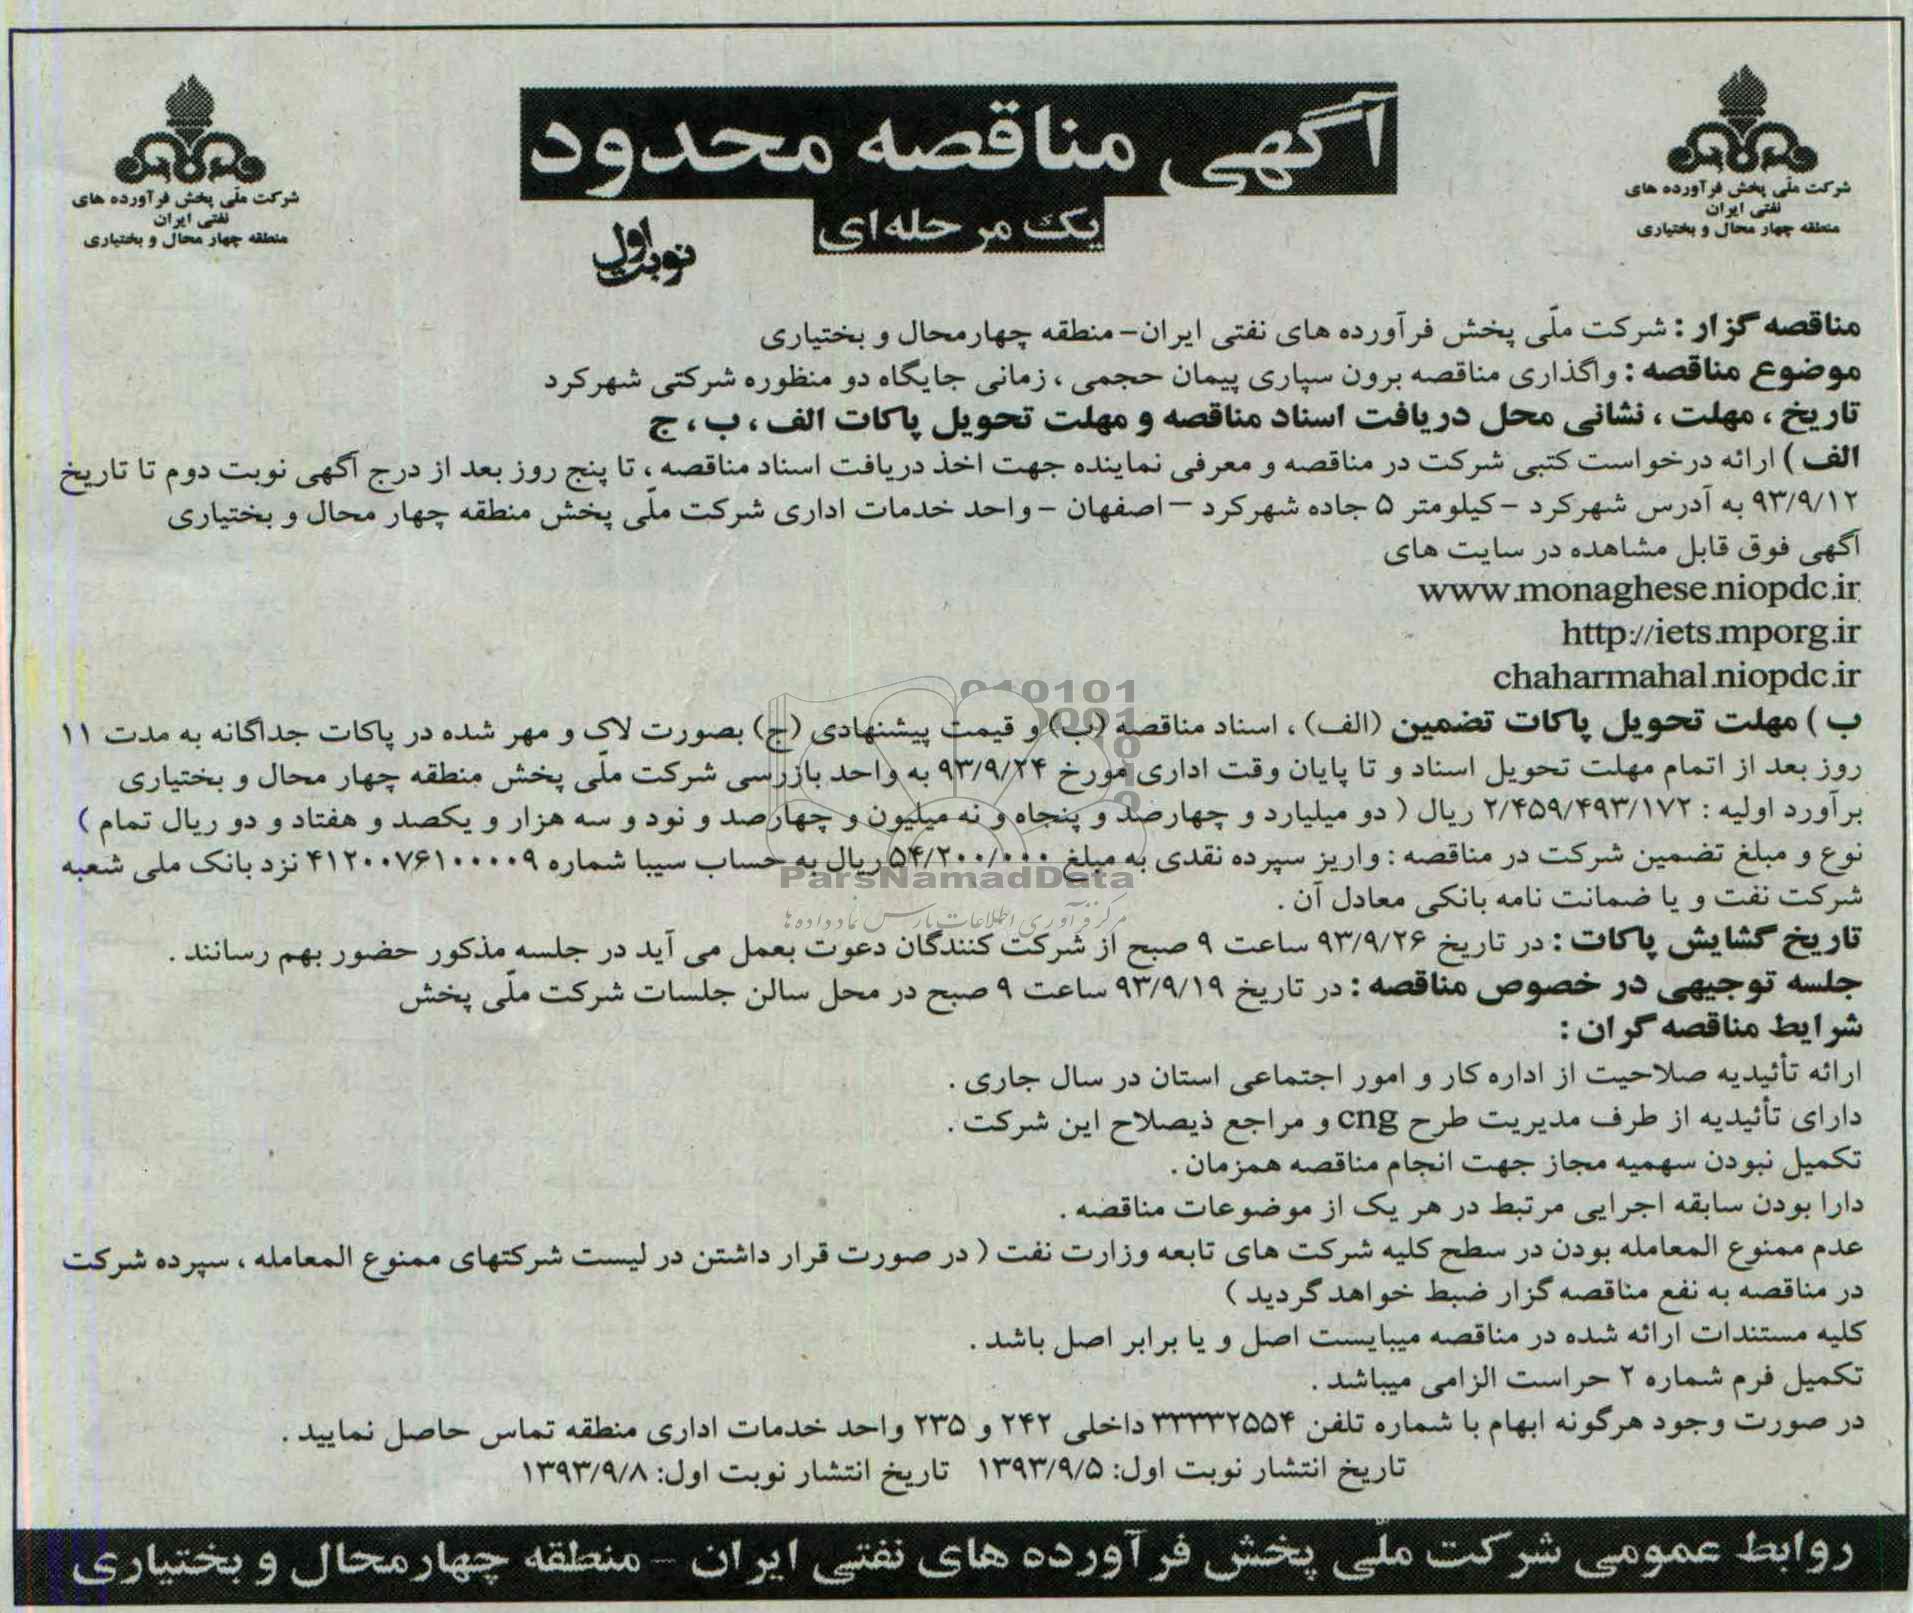 شرکت ملّی پخش فرآورده های
نفتی ایران
منطقه چهار محال و بختیاری
آگهی مناقصه محدود
یک مرحله‌ای
نوبت اول
شرکت ملّی پخش فرآورده های
نفتی ایران
منطقه چهار محال و بختیاری
مناقصه گزار : شرکت ملّی پخش فرآورده های نفتی ایران-منطقه چهارمحال و بختیاری
موضوع مناقصه : واگذاری مناقصه برون سپاری پیمان حجمی ، زمانی جایگاه دو منظوره شرکتی شهرکرد
تاریخ ، مهلت ، نشانی محل دریافت اسناد مناقصه و مهلت تحویل پاکات الف ، ب ، ج
الف ) ارائه درخواست کتبی شرکت در مناقصه و معرفی نماینده جهت اخذ دریافت اسناد مناقصه ، تا پنج روز بعد از درج آگهی نوبت دوم تا تاریخ
۹۳/۹/۱۲ به آدرس شهرکرد -کیلومتر ۵ جاده شهرکرد -اصفهان - واحد خدمات اداری شرکت ملّی پخش منطقه چهار محال و بختیاری
آگهی فوق قابل مشاهده در سایت های
www.monaghese.niopdc.ir
http://iets.mporg.ir
chaharmahal.niopdc.ir
ب ) مهلت تحویل پاکات تضمین (الف) ، اسناد مناقصه (ب) و قیمت پیشنهادی (ج) بصورت لاک و مهر شده در پاکات جداگانه به مدت ۱۱
روز بعد از اتمام مهلت تحویل اسناد و تا پایان وقت اداری مورخ ۹۳/۹/۲۴ به واحد بازرسی شرکت ملّی پخش منطقه چهار محال و بختیاری
برآورد اولیه : ۲/۴۵۹/۴۹۳/۱۷۲ ریال ( دو میلیارد و چهارصد و پنجاه و نه میلیون و چهارصد و نود و سه هزار و یکصد و هفتاد و دو ریال تمام )
نوع و مبلغ تضمین شرکت در مناقصه : واریز سپرده نقدی به مبلغ ۵۴/۲۰۰/۰۰۰ ریال به حساب سیبا شماره ۴۱۲۰۰۷۶۱۰۰۰۰۹ نزد بانک ملی شعبه
شرکت نفت و یا ضمانت نامه بانکی معادل آن .
ParsNamadData
مرکز فرآوری اطلاعات پارس نماد داده ها
تاریخ گشایش پاکات : در تاریخ ۹۳/۹/۲۶ ساعت ۹ صبح از شرکت کنندگان دعوت بعمل می آید در جلسه مذکور حضور بهم رسانند .
جلسه توجیهی در خصوص مناقصه : در تاریخ ۹۳/۹/۱۹ ساعت ۹ صبح در محل سالن جلسات شرکت ملّی پخش
شرایط مناقصه گران :
ارائه تأئیدیه صلاحیت از اداره کار و امور اجتماعی استان در سال جاری .
دارای تأئیدیه از طرف مدیریت طرح cng و مراجع ذیصلاح این شرکت .
تکمیل نبودن سهمیه مجاز جهت انجام مناقصه همزمان .
دارا بودن سابقه اجرایی مرتبط در هر یک از موضوعات مناقصه .
عدم ممنوع المعامله بودن در سطح کلیه شرکت های تابعه وزارت نفت ( در صورت قرار داشتن در لیست شرکتهای ممنوع المعامله ، سپرده شرکت
در مناقصه به نفع مناقصه گزار ضبط خواهد گردید )
کلیه مستندات ارائه شده در مناقصه میبایست اصل و یا برابر اصل باشد .
تکمیل فرم شماره ۲ حراست الزامی میباشد .
در صورت وجود هرگونه ابهام با شماره تلفن ۳۳۳۳۲۵۵۴ داخلی ۲۴۲ و ۲۳۵ واحد خدمات اداری منطقه تماس حاصل نمایید .
تاریخ انتشار نوبت اول: ۱۳۹۳/۹/۵ تاریخ انتشار نوبت اول: ۱۳۹۳/۹/۸
روابط عمومی شرکت ملّی پخش فرآورده های نفتی ایران - منطقه چهارمحال و بختیاری